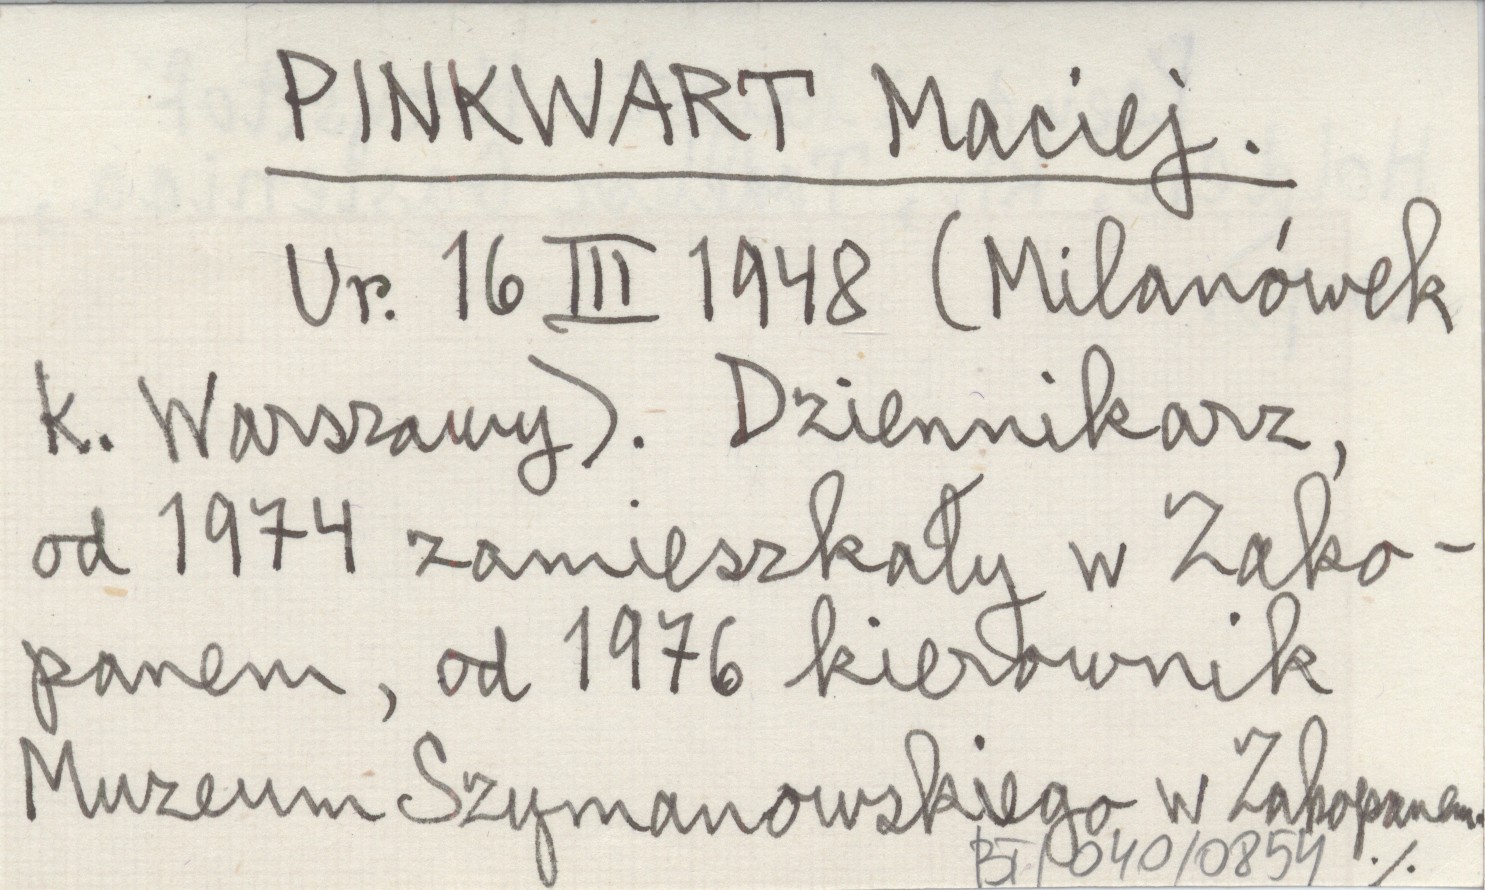 PINKWART Maciej.
Ur. 16 III 1948 (Milanówek
k. Warszawy). Dziennikarz,
od 1974 zamieszkały w Zako-
panem, od 1976 kierownik
Muzeum Szymanowskiego w Zakopanem.
BT/040/0854 ./.